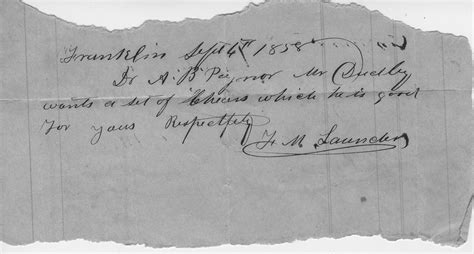 Franklin Sept 4th 1858
Dr A. B. Paynor Mr Dudley
wants a set of Chears which he is good
for yours Respectfuly
H. M. Launders